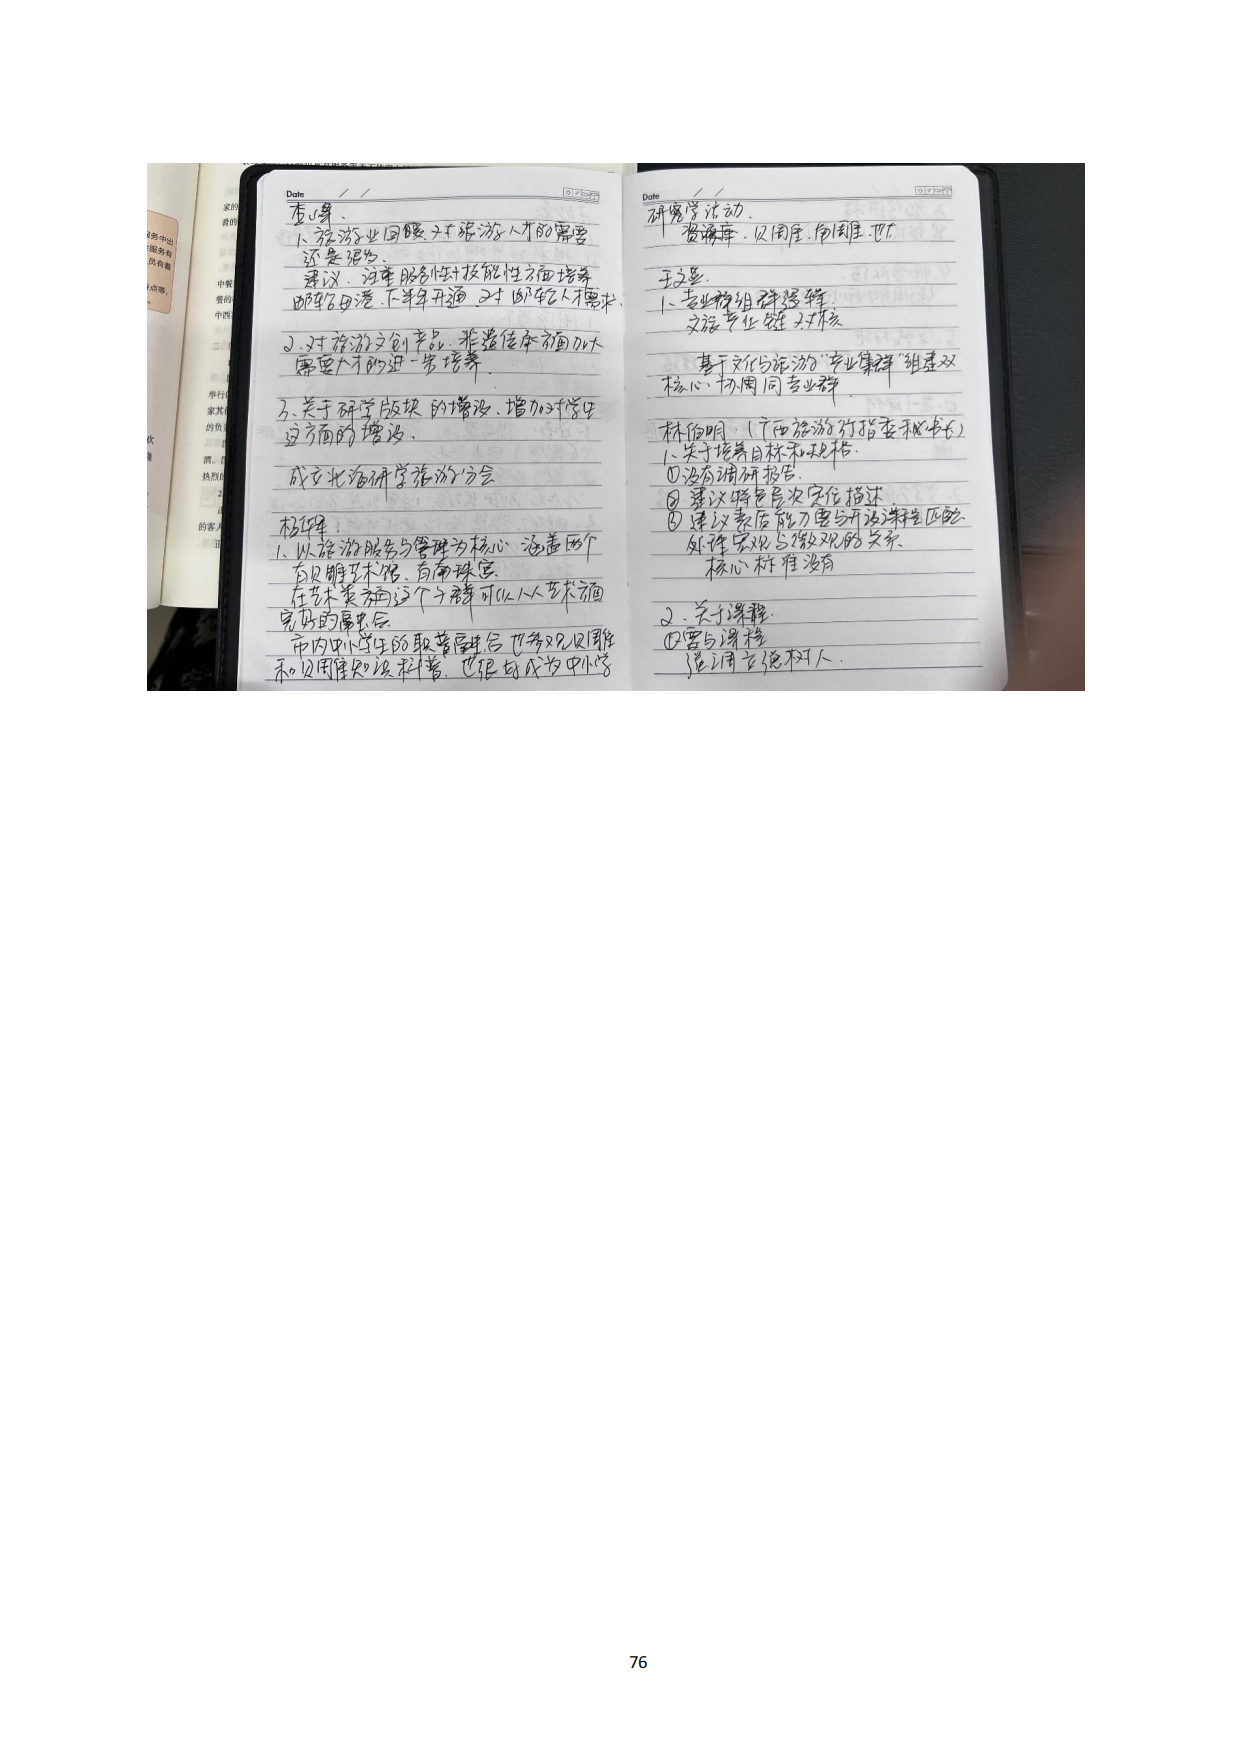 Date / /
查峰.
1、旅游业回暖、对旅游人才的需要
还是很多.
建议、注重服务性+技能性方面培养
邮轮母港、下半年开通、对邮轮人才需求.
2、对旅游文创产品、非遗传承方面加大
需要人才的进一步培养.
3、关于研学版块的增设、增加对学生
这方面的增设.
成立北海研学旅游分会
杨军:
1、以旅游服务与管理为核心 涵盖两个
有贝雕艺术馆、有南珠宫.
在艺术类方面这个子群可以从艺术方面
完好的融合
市内中小学生的职普融合 也参观贝雕
和贝雕知识科普、也很好成为中小学
Date / /
研究学活动.
资源库、贝雕、角雕、也
1、专业群组群逻辑.
文旅产业链 对核
基于文化与旅游"产业集群"组建双
核心、协同专业群.
林伯明 (广西旅游行指委秘书长)
1、关于培养目标和规格.
①没有调研报告.
②建议特色层次定位描述.
③建议素质能力要与开设课程匹配.
处理宏观与微观的关系.
核心标准没有
2、关于课程.
①要与课程
强调立德树人.
76